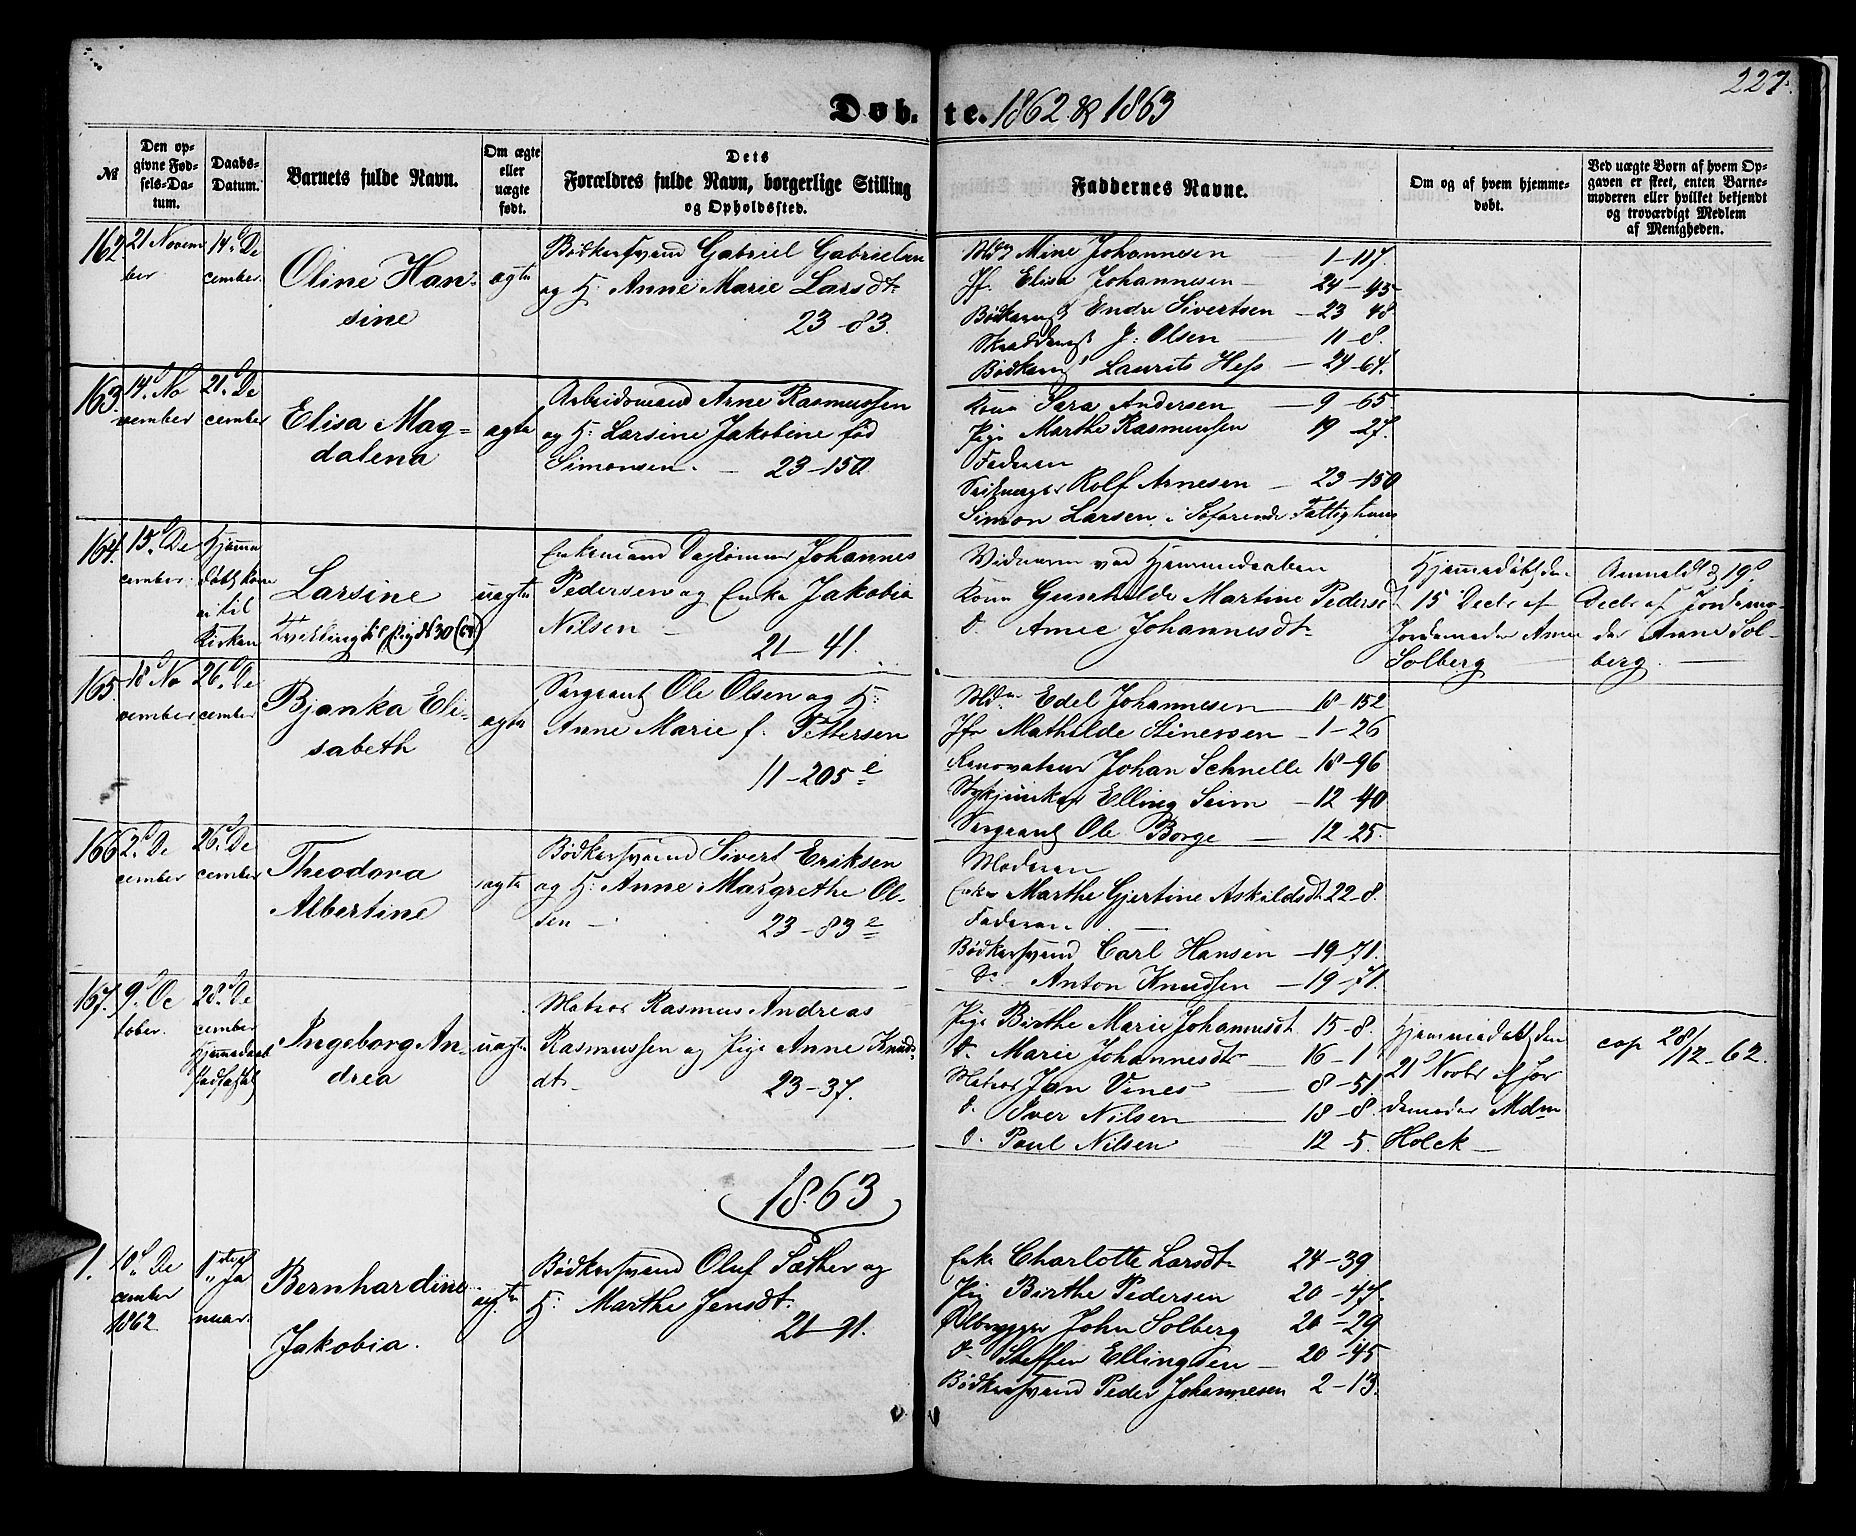 227.
Døb-te. 1862 & 1863
№
Den op-
givne Fød-
sels-Da-
tum.
Daabs-
Datum.
Barnets fulde Navn.
Om ægte
eller
uægte
født.
Dets
Forældres fulde Navn, borgerlige Stilling
og Opholdssted.
Faddernes Navne.
Om og af hvem hjemme-
døbt.
Ved uægte Børn af hvem Op-
gaven er skeet, enten Barne-
moderen eller hvilket bekjendt
og troværdigt Medlem
af Menigheden.
162
21 Novem
ber
14d De
cember
Oline Han-
sine
ægte
Bødkersvend Gabriel Gabrielsen
og H: Anne Marie Larsdt
23-83.
Mine Johannesen 1-117.
Jf. Elisa Johannesen 24-45
Endre Sivertsen 23 48
J: Olsen 11-8.
Laurits Hess 24-64.
163.
14d No
vember
21d De
cember
Elisa Mag-
dalena
ægte
Arbeidsmand Arne Rasmussen
og H: Larsine Jakobine fød
Simonsen. 23-150
Kone Sara Andersen 9-65
Pige Marthe Rasmussen 19-27.
Faderen
Rolf Arnesen 23-150
Simon Larsen i Søfarendes Fattighuus
164.
15d De
cember
Hjemme
døbt kom
ei til
Kirken
Larsine
Tvilling til Pige № 30
uægte
Enkemand Daglønner Johannes
Pedersen og Enke Jakobia
Nilsen
21-41.
Vidnerne ved Hjemmedaaben
Kone Gunhilde Martine Pedersdt
d. Anne Johannesdt
Hjemmedøbt den
15 Decbr af
Jordemoder Anne
Solberg
Anmeldt d 19d
Decbr af Jordemo-
der Anne Sol-
berg
165
18d No
vember
26d De
cember
Bjanka Eli-
sabeth
ægte
Sergeant Ole Olsen og H:
Anne Marie f. Pettersen
11-205e
Edel Johannesen 18-152
Jfr Mathilde Stinessen 1-26
Renovateur Johan Schnelle 18-96
Elling Seim 12-40
Sergeant Ole Borge 12-25.
166
2d De
cember
26d De
cember
Theodora
Albertine
ægte
Bødkersvend Sivert Eriksen
og H: Anne Margrethe Ol-
sen
23-83e
Moderen
Enke Marthe Gjertine Askildsdt 22-8.
Faderen
Bødkersvend Carl Hansen 19-71.
do Anton Knudsen 19-71.
167.
9d Oc
tober.
28d De
cember
Hjemmedaab
stadfæstet
Ingeborg An-
drea
uægte
Matros Rasmus Andreas
Rasmussen og Pige Anne Knuds-
dt
23-37.
Pige Birthe Marie Johannesdt 15-8.
d. Marie Johannesdt 16-1
Matros Jan Vines 8-51
d. Iver Nilsen 18-8
d. Poul Nilsen 12-5.
Hjemmedøbt den
21 Novbr af Jor
demoder Mdm
Holck
cop 28/12-62.
1863
1.
10d De
cember
1862
1ste Ja
nuar.
Bernhardine
Jakobia.
ægte
Bødkersvend Oluf Sæther og
H: Marthe Jensdt.
21-91.
Enke Charlotte Larsdt 24-39
Pig Birthe Pedersen 20-47.
Ølbrygger John Solberg 20-29
d. Steffen Ellingsen 20-45
Bødkersvend Peder Johannesen 2-13.